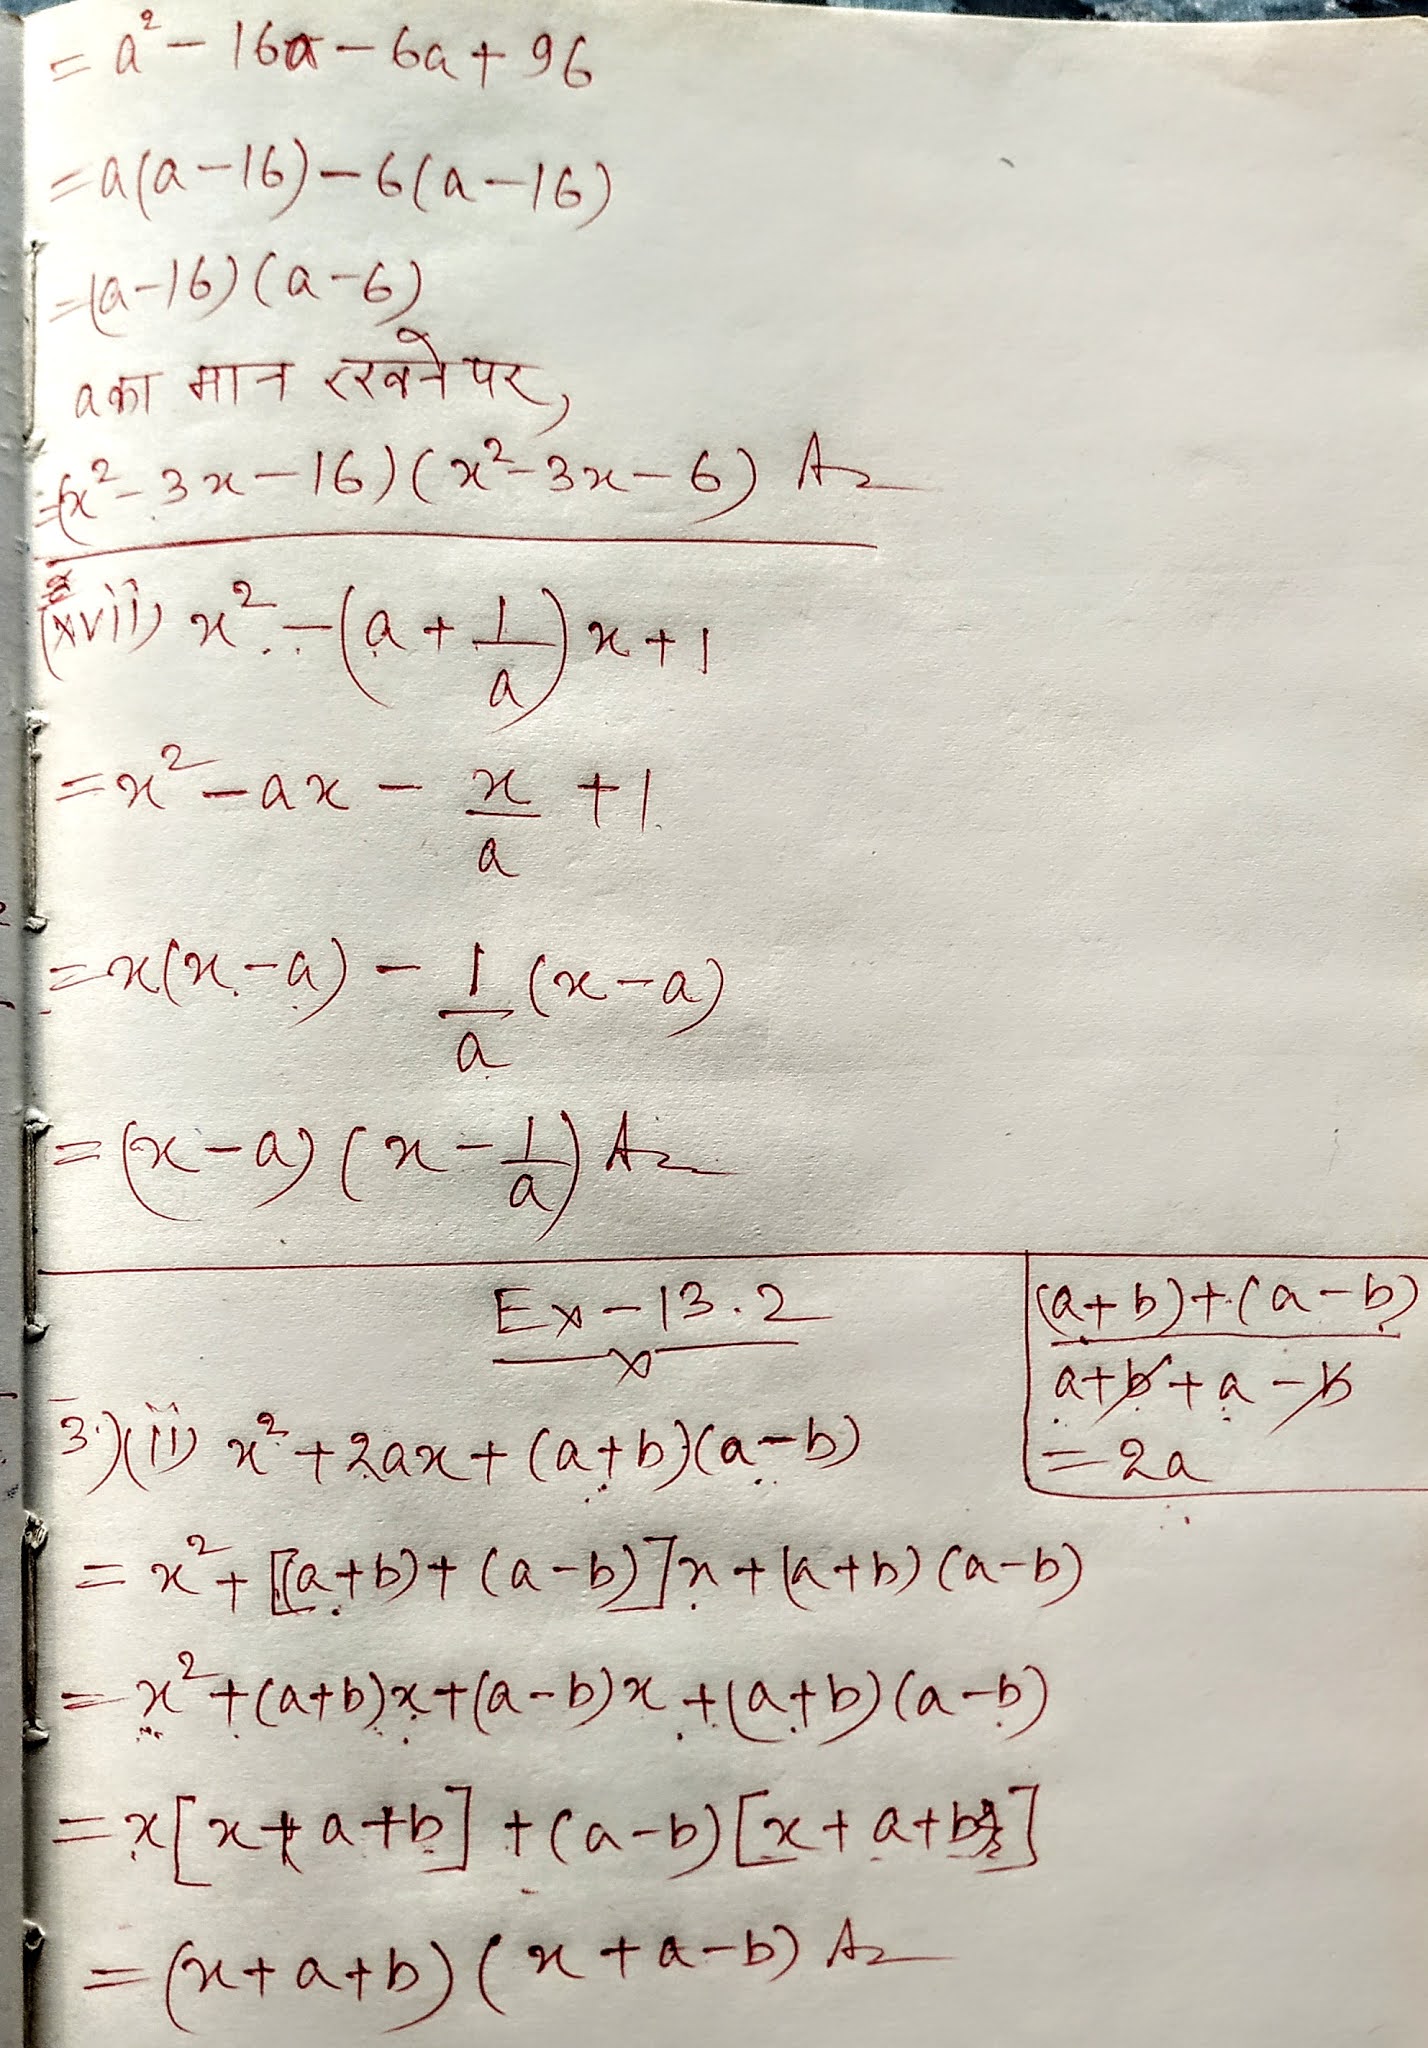 = a² - 16a - 6a + 96
= a(a - 16) - 6(a - 16)
= (a - 16)(a - 6)
a का मान रखने पर,
= (x² - 3x - 16)(x² - 3x - 6) Ans
(xvii) x² - (a + 1/a)x + 1
= x² - ax - x/a + 1
= x(x - a) - 1/a (x - a)
= (x - a)(x - 1/a) Ans
Ex - 13.2
(a + b) + (a - b)
a + b + a - b
= 2a
3.)(ii) x² + 2ax + (a + b)(a - b)
= x² + [(a + b) + (a - b)]x + (a + b)(a - b)
= x² + (a + b)x + (a - b)x + (a + b)(a - b)
= x[x + a + b] + (a - b)[x + a + b]
= (x + a + b)(x + a - b) Ans